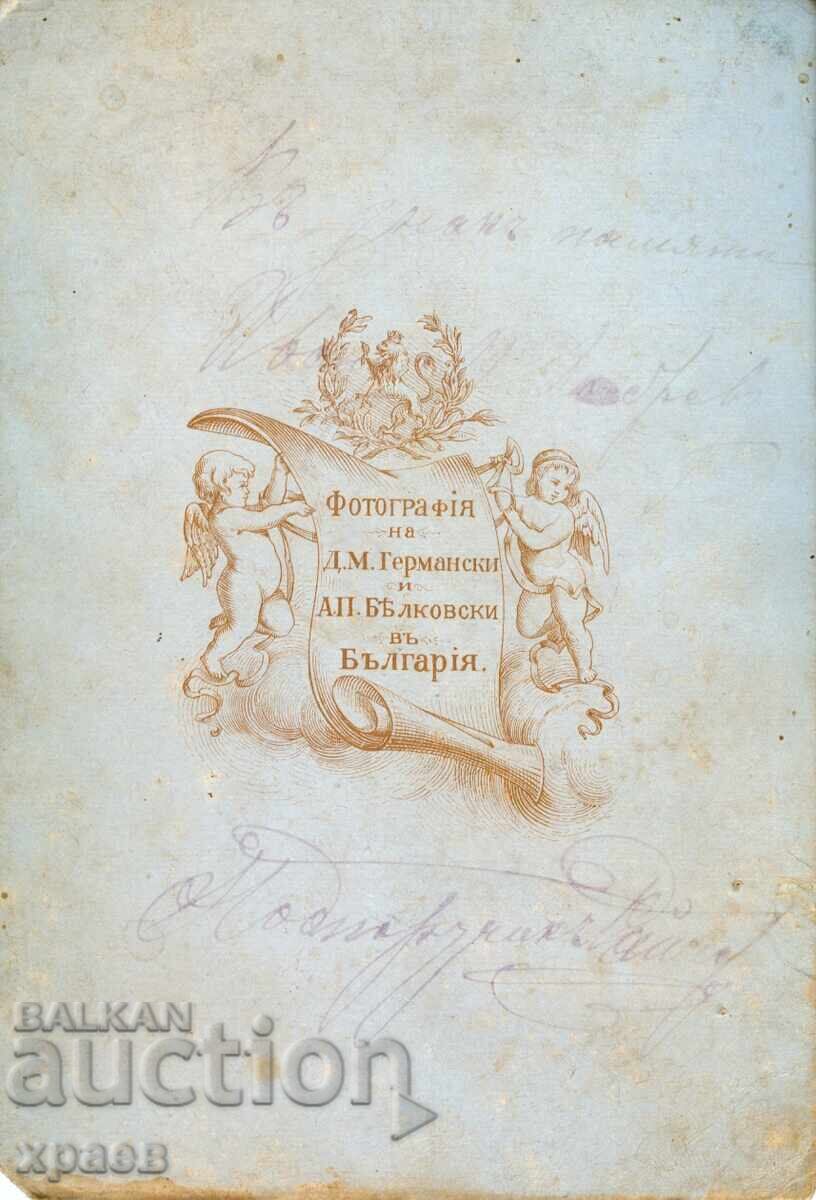 Въ знакъ памяти
Фотографія
на
Д.М. Германски
и
А.П. Бѣлковски
въ
Българія.
Подпоручикъ
BALKAN
auction
храев